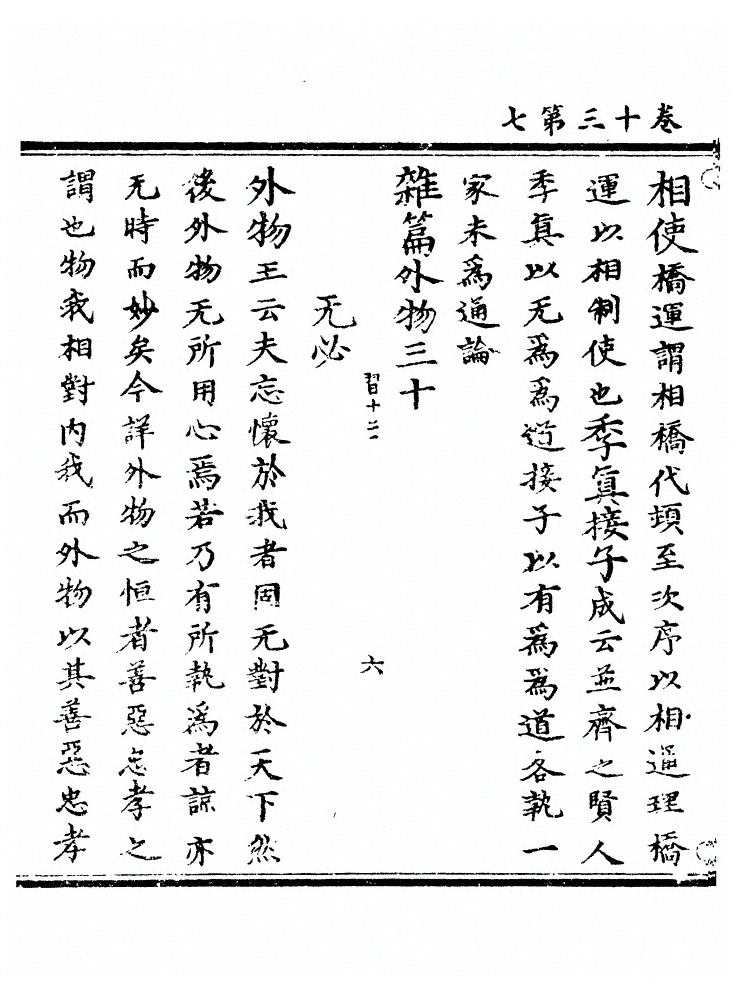 七第三十卷
相使橋運謂相橋代頓至次序以相通理橋
運以相制使也季真接子成云並齊之賢人
季真以无為為道接子以有為為道各執一
家未為通論
雜篇外物三十
習十二
六
无必
外物王云夫忘懷於我者固无對於天下然
後外物无所用心焉若乃有所執為者諒亦
无時而妙矣今詳外物之恒者善惡忠孝之
謂也物我相對內我而外物以其善惡忠孝